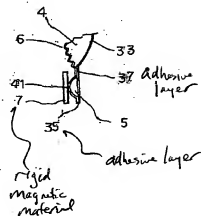 4
6
33
37 adhesive
layer
41
7
5
35
adhesive layer
rigid
magnetic
material